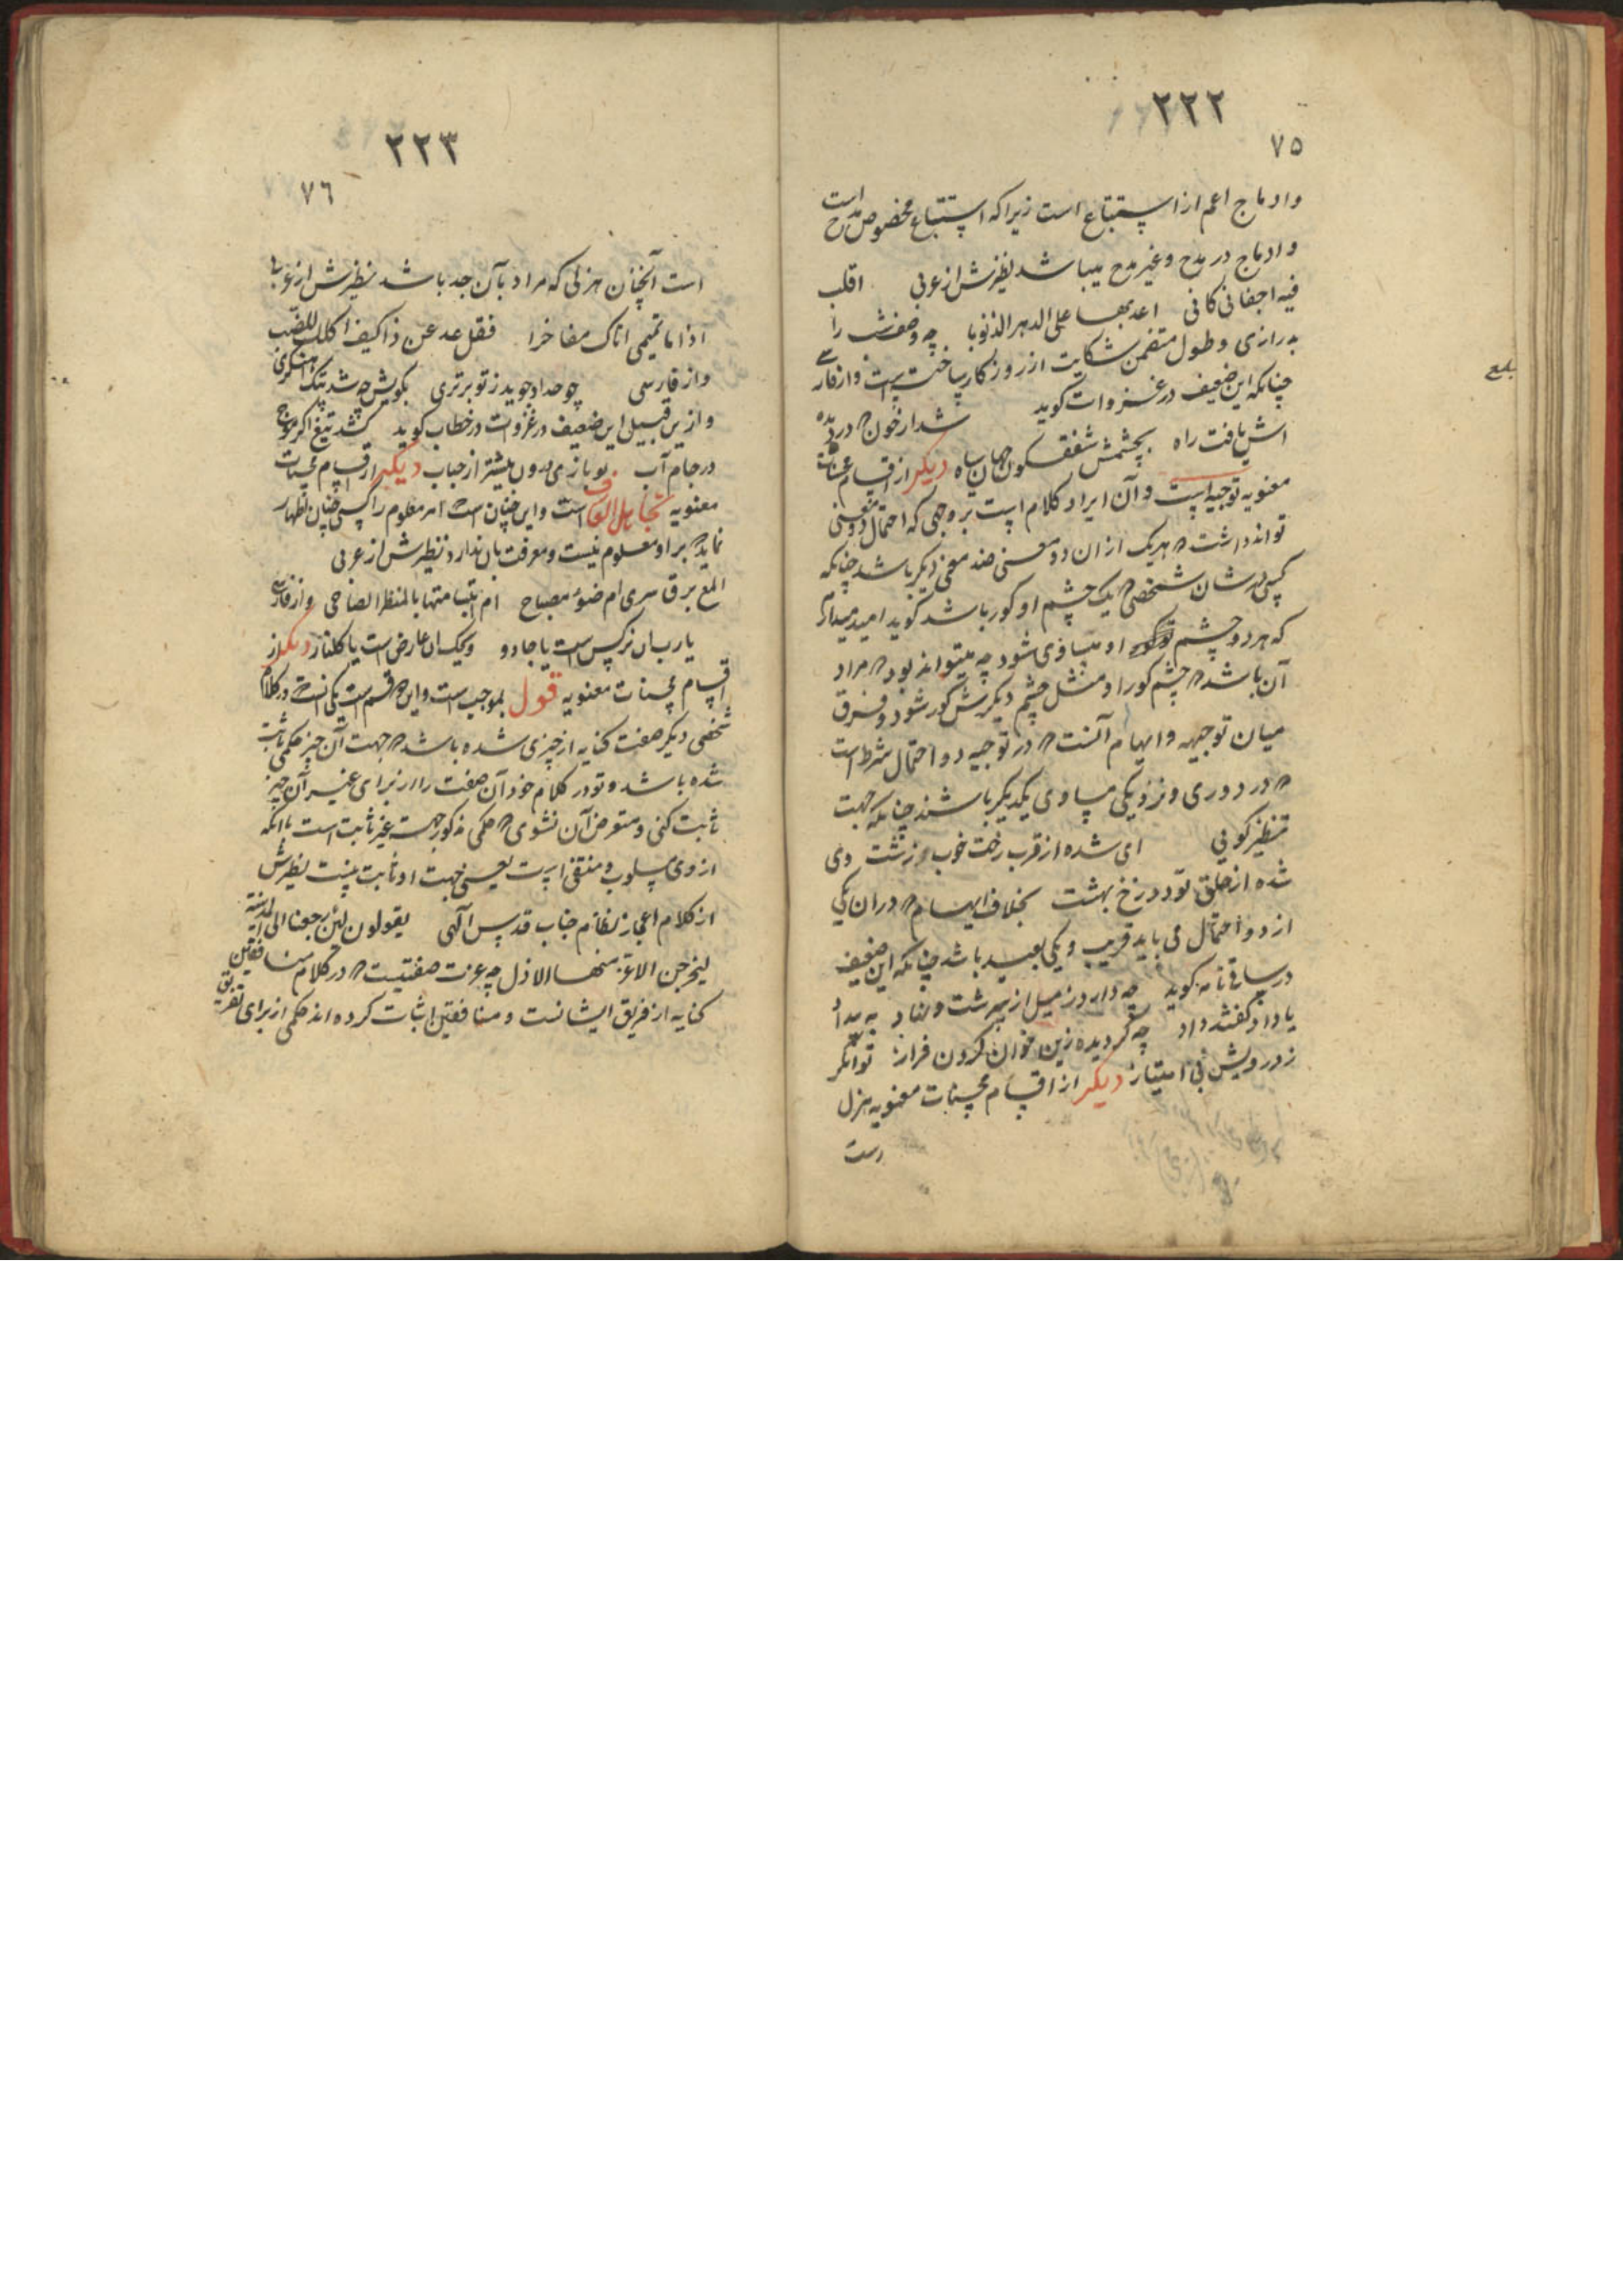 ٢٢٢
٧٥
وادماج اعم از استتباع است زیراکه استتباع مخصوص مدح است
وادماج در مدح وغیر مدح میباشد نظیرش از عربی اقلب
فیه اجفانی کانی اعد بها علی الدهر الذنوبا چه وصف شب را
بدرازی وطول متضمن شکایت از روزکار ساخته است واز فارسی
چنانکه این ضعیف در غزوات کوید شد از خون در دیده
اش یافت راه بچشمش شفق کون جهان سیاه دیکر از اقسام محسنات
معنویه توجیه است وآن ایراد کلام است بر وجهی که احتمال دو معنی
تواند داشت که هریک ازان دو معنی ضد معنی دیکر باشد چنانکه
کسی در شان شخصی که یک چشم او کور باشد کوید امید میدارم
که هر دو چشم او مساوی شود چه میتواند بود که مراد
آن باشد که چشم کور او مثل چشم دیکرش کور شود وفرق
میان توجیه وایهام آنست که در توجیه دو احتمال شرط است
که در دوری ونزدیکی مساوی یکدیکر باشند چنانکه جهت
تنظیر کوئی ای شده از قرب رخت خوب زشت وی
شده از خلق تو دوزخ بهشت بخلاف ایهام که دران یکی
از دو احتمال می باید قریب ویکی بعید باشد چنانکه این ضعیف
در ساقی نامه کوید چه دارد ز میل از بهر شت ونهاد
یا داد کفشد داد چه کردیده زین خوان کردون فراز توانکر
ز درویش بی امتیاز دیکر از اقسام محسنات معنویه هزل
است
بلغ
٢٢٣
٧٦
است آنچنان هزلی که مراد بآن جد باشد نظیرش از عربی
اذا ما تمیمی اتاک مفاخرا فقل عد عن ذا کیف اکلک للضب
واز فارسی چو حداد جوید ز تو برتری بکویش چه شد پتک آهنکری
وازین قبیل این ضعیف در غزوات در خطاب کوید کشد تیغ اکر موج
در جام آب بو بازی بدون بیشتر از حباب دیگر از اقسام محسنات
معنویه تجاهل العارف است واین چنان است که امر معلوم را کسی چنان اظهار
نماید که بر او معلوم نیست ومعرفت بان ندارد نظیرش از عربی
المع برق سری ام ضوء مصباح ام ابتسامتها بالمنظر الضاحی واز فارسی
یارب ان نرکس است یا جادو ویحک ان عارض است یا کلنار دیکر از
اقسام محسنات معنویه قول بموجب است واین دو قسم است یکی آنست که در کلام
شخصی دیکر صفت کنایه از چیزی شده باشد که جهت آن چیز حکمی ثابت
شده باشد وتو در کلام خود آن صفت را از برای غیر آن چیز
ثابت کنی ومتعرض آن نشوی که حکم مذکور جهت غیر ثابت است یا انکه
از وی مسلوب ومنتفی است یعنی جهت او ثابت نیست نظیرش
از کلام اعجاز نظام جناب قدس آلهی یقولون لئن رجعنا الی المدینة
لیخرجن الاعز منها الاذل چه عزت صفتیست که در کلام منافقین
کنایه از فریق ایشانست ومنافقین اثبات کرده اند حکمی از برای فریق